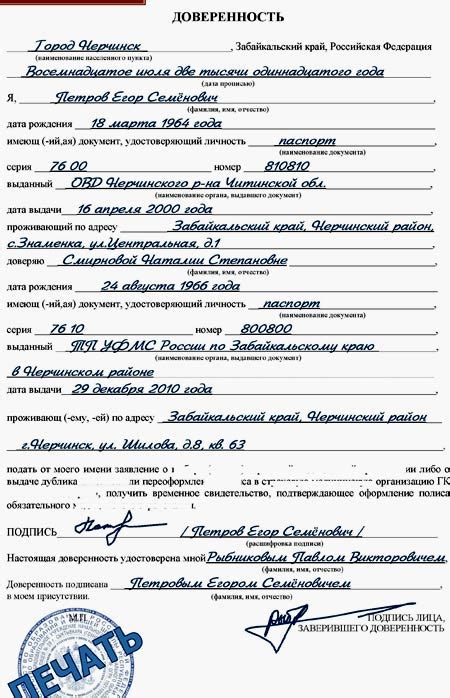 ДОВЕРЕННОСТЬ
Город Нерчинск, Забайкальский край, Российская Федерация
(наименование населенного пункта)
Восемнадцатое июля две тысячи одиннадцатого года
(дата прописью)
Я, Петров Егор Семёнович,
(фамилия, имя, отчество)
дата рождения 18 марта 1964 года
имеющ (-ий,ая) документ, удостоверяющий личность паспорт
(наименование документа)
серия 76 00 номер 810810,
выданный ОВД Нерчинского р-на Читинской обл.,
(наименование органа, выдавшего документ)
дата выдачи 16 апреля 2000 года
проживающий по адресу Забайкальский край, Нерчинский район,
с.Знаменка, ул.Центральная, д.1
доверяю Смирновой Наталии Степановне
(фамилия, имя, отчество)
дата рождения 24 августа 1966 года
имеющ (-ий,ая) документ, удостоверяющий личность паспорт
(наименование документа)
серия 76 10 номер 800800
выданный ТП УФМС России по Забайкальскому краю
(наименование органа, выдавшего документ)
в Нерчинском районе
дата выдачи 29 декабря 2010 года
проживающ (-ему, -ей) по адресу Забайкальский край, Нерчинский район
г.Нерчинск, ул. Шилова, д.8, кв. 63
подать от моего имени заявление о либо о
выдаче дубликата переоформлен в организацию ГК
, получить временное свидетельство, подтверждающее оформление полиса
обязательного
ПОДПИСЬ / Петров Егор Семёнович /
(расшифровка подписи)
Настоящая доверенность удостоверена мной Рыбниковым Павлом Викторовичем,
(фамилия, имя, отчество)
Доверенность подписана Петровым Егором Семёновичем
в моем присутствии. (фамилия, имя, отчество)
М.П. ПОДПИСЬ ЛИЦА,
ЗАВЕРИВШЕГО ДОВЕРЕННОСТЬ
ПЕЧАТЬ